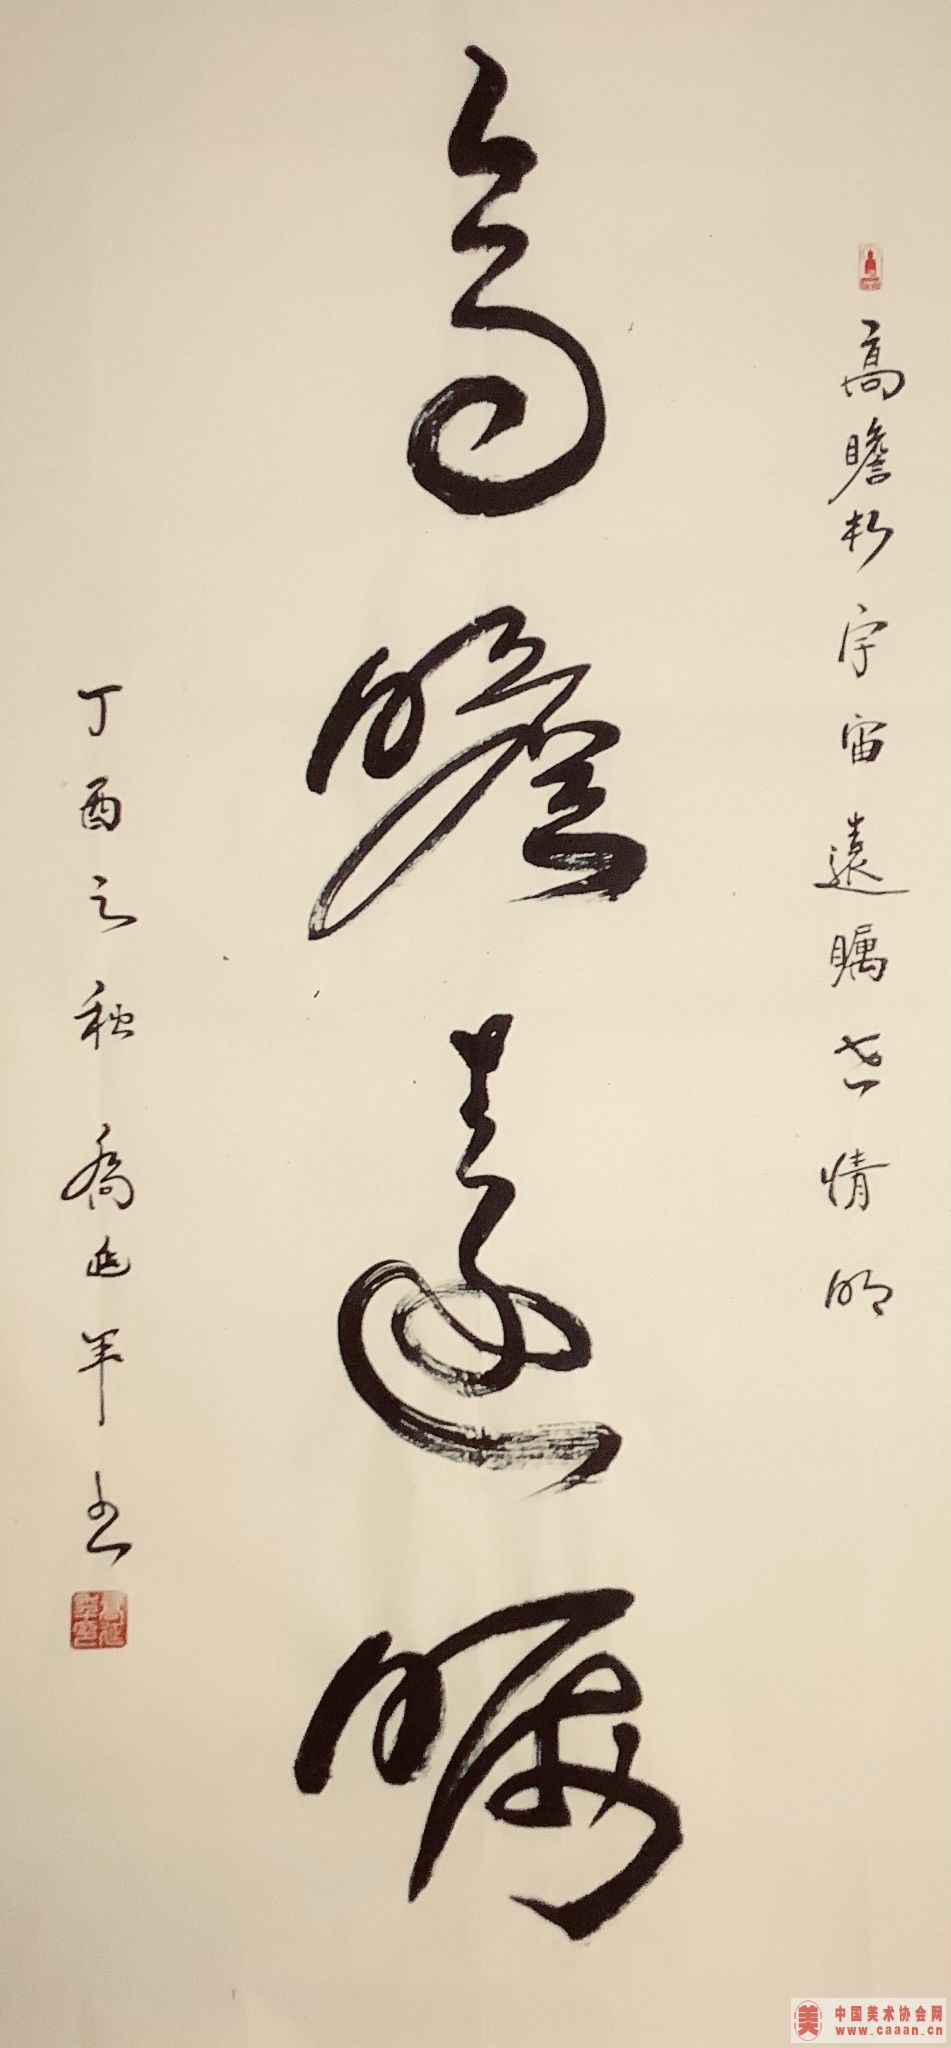 高瞻於宇宙遠瞩世情明
高瞻遠瞩
丁酉之秋喬延军书
美
中国美术协会网
www.caaan.cn